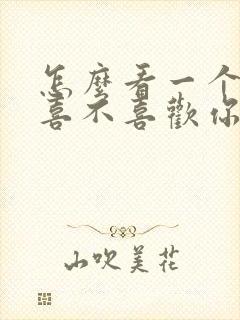 怎麼看一个
喜不喜歡你
山吹美花